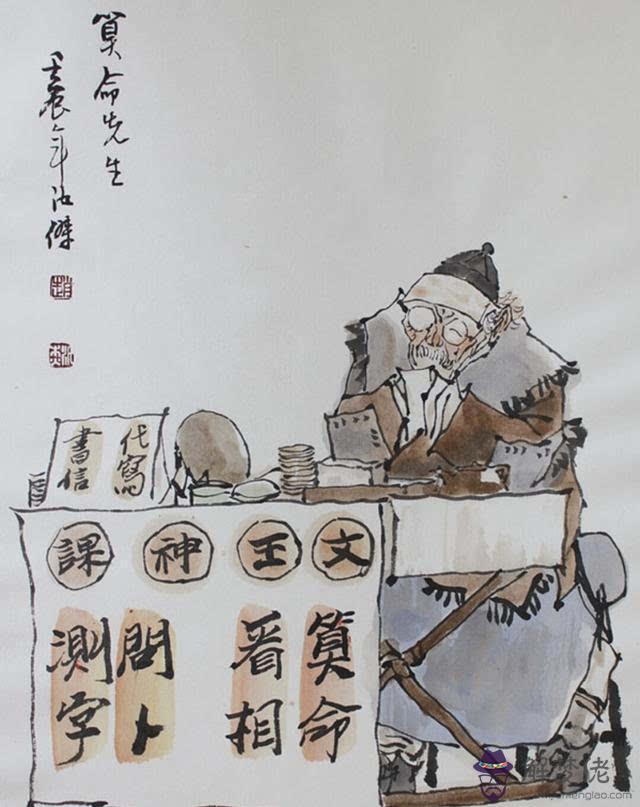 算命先生
壬辰年 傑
代寫
書信
文王神課
算命
看相
問卜
測字
解梦佬